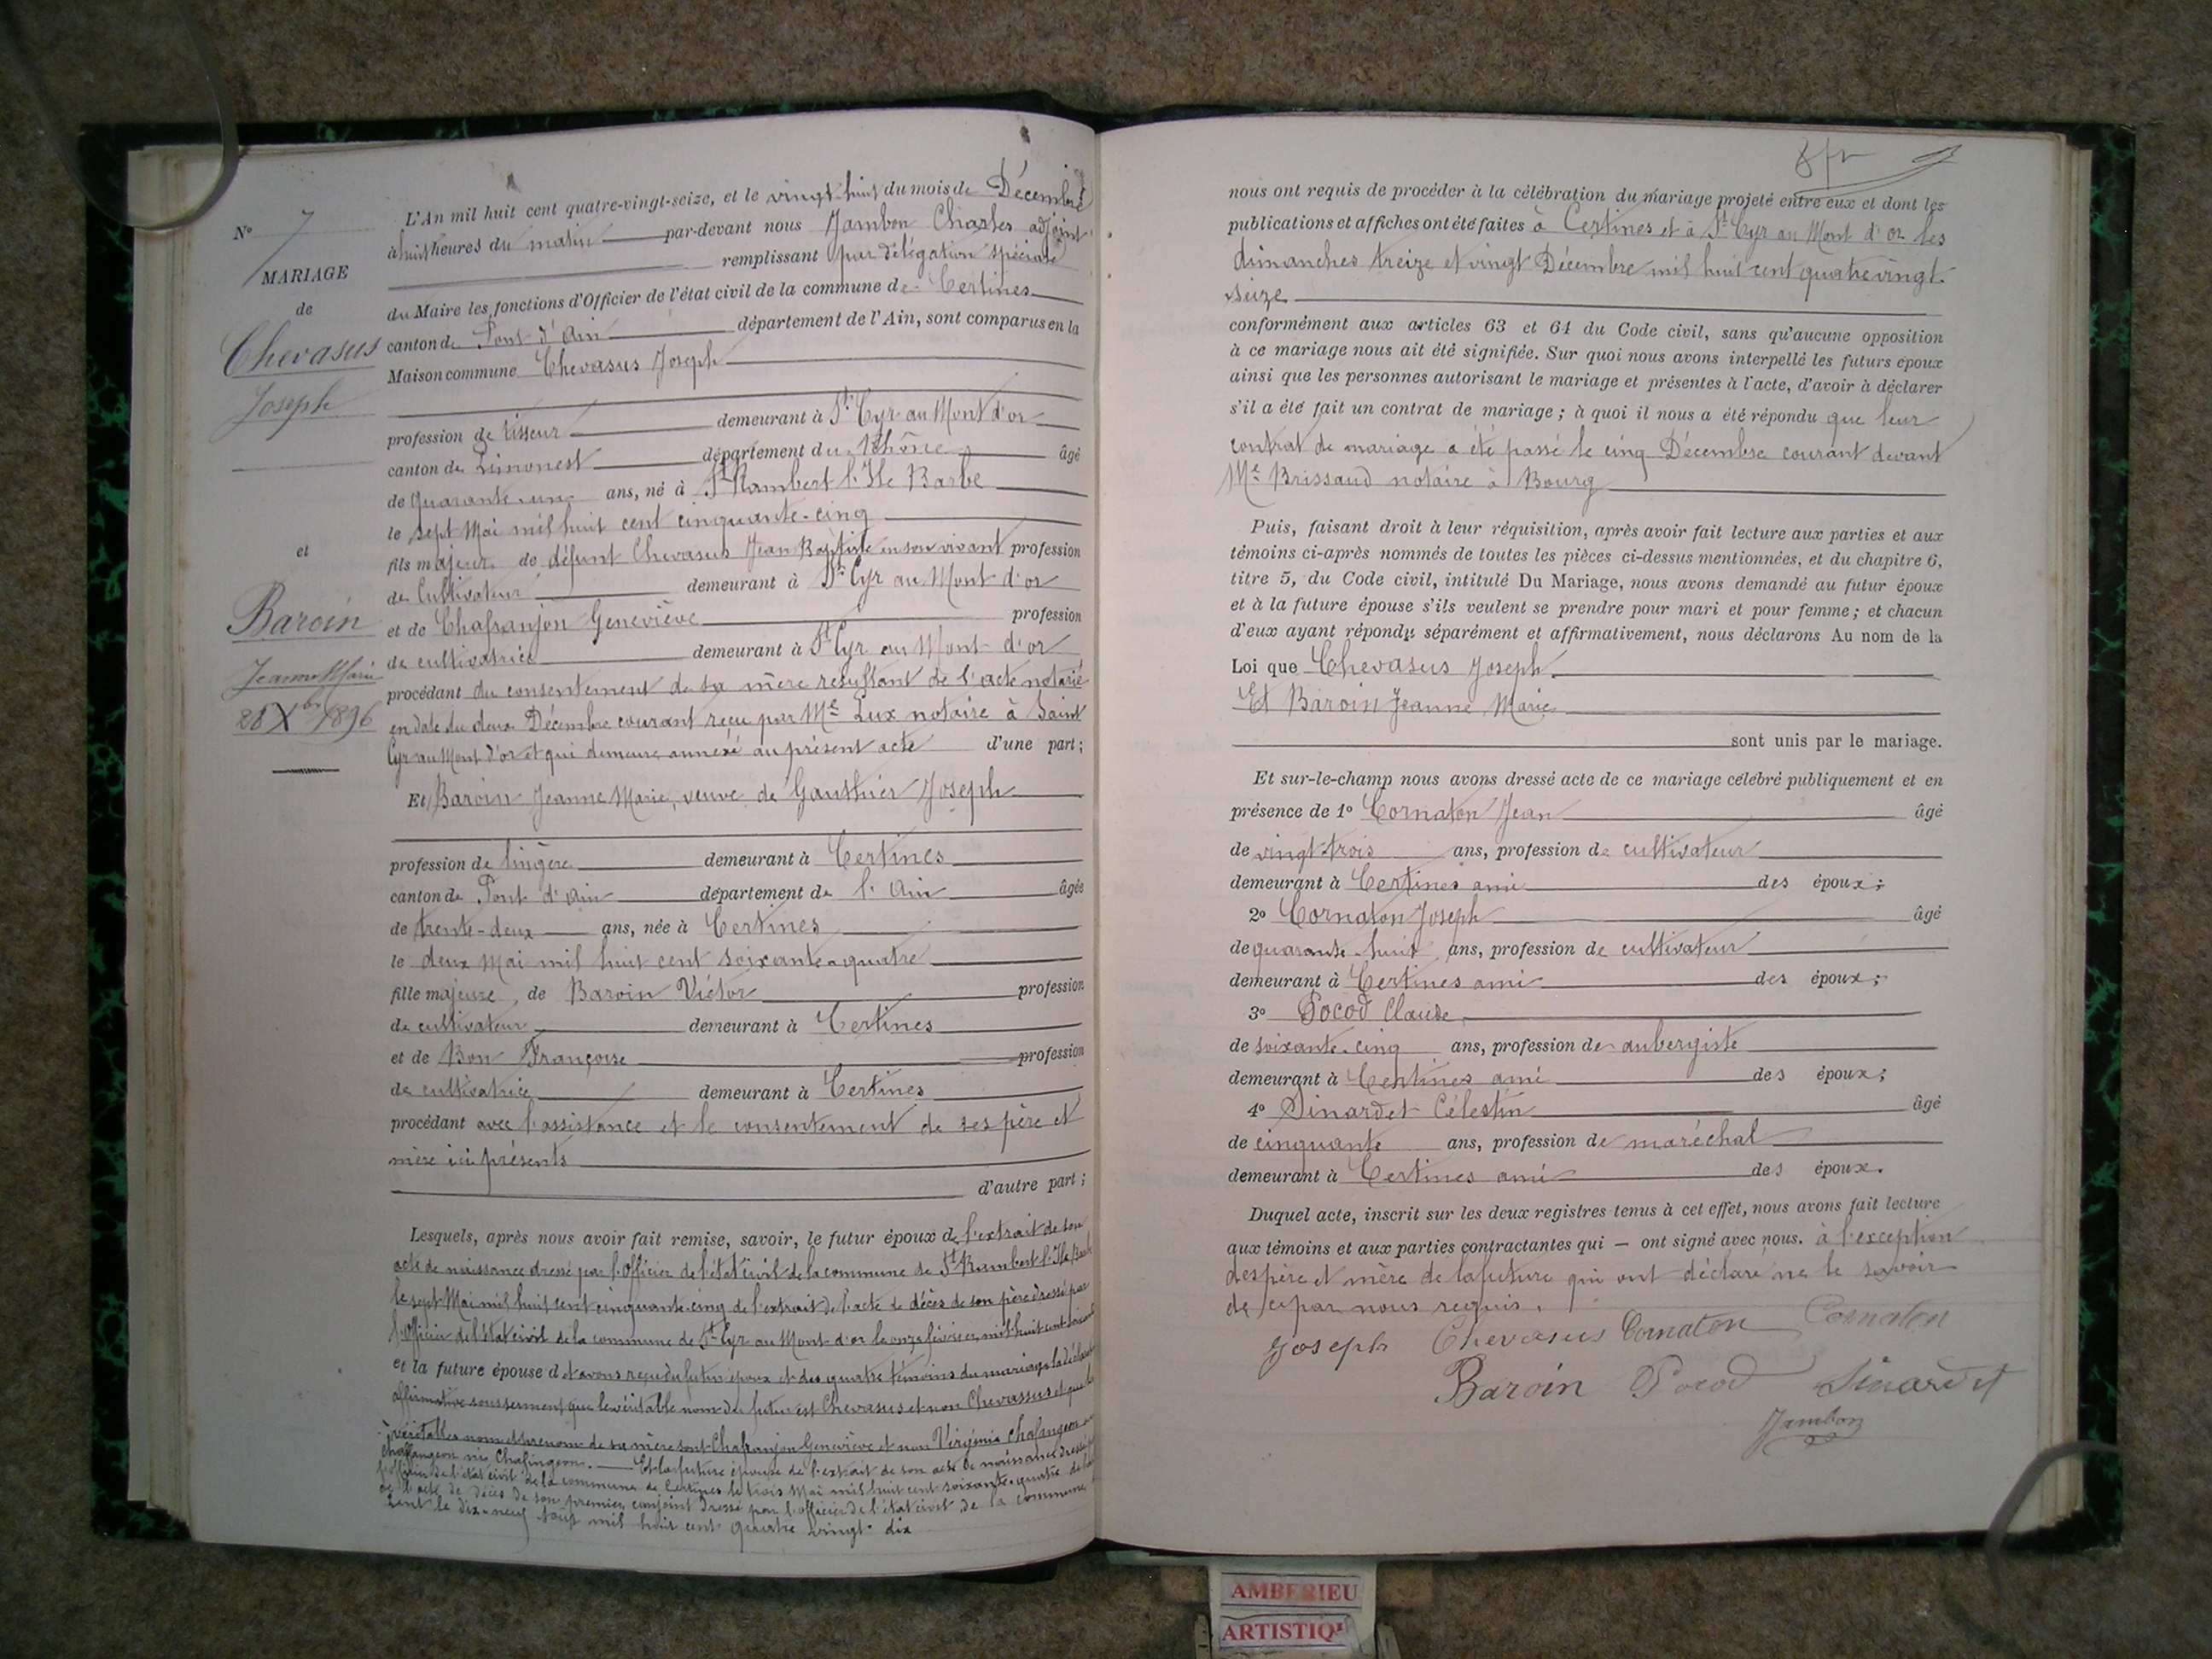 N° 7
MARIAGE
de
Chevasus
Joseph
et
Baroin
Jeanne Marie
28 Xbre 1896
L'An mil huit cent quatre-vingt-seize, et le vingt huit du mois de Décembre
à huit heures du matin par-devant nous Jambon Charles adjoint
remplissant par délégation spéciale
du Maire les fonctions d'Officier de l'état civil de la commune de Certines
canton de Pont-d'Ain département de l'Ain, sont comparus en la
Maison commune Chevasus Joseph
profession de tisseur demeurant à St Cyr au Mont d'or
canton de Limonest département du Rhône âgé
de quarante-un ans, né à St Rambert l'Ile Barbe
le sept Mai mil huit cent cinquante-cinq
fils majeur de défunt Chevasus Jean Baptiste en son vivant profession
de Cultivateur demeurant à St Cyr au Mont d'or
et de Chafranjon Geneviève profession
de cultivatrice demeurant à St Cyr au Mont d'or
procédant du consentement de sa mère résultant de l'acte notarié
en date du deux Décembre courant reçu par Me Lux notaire à Saint
Cyr au Mont d'or et qui demeure annexé au présent acte d'une part;
Et Baroin Jeanne Marie, veuve de Gauthier Joseph
profession de lingère demeurant à Certines
canton de Pont d'Ain département de l'Ain âgée
de trente-deux ans, née à Certines
le deux Mai mil huit cent soixante-quatre
fille majeure, de Baroin Victor profession
de cultivateur demeurant à Certines
et de Bon Françoise profession
de cultivatrice demeurant à Certines
procédant avec l'assistance et le consentement de ses père et
mère ici présents
d'autre part;
Lesquels, après nous avoir fait remise, savoir, le futur époux de l'extrait de son
acte de naissance dressé par l'Officier de l'état civil de la commune de St Rambert l'Ile Barbe
le sept Mai mil huit cent cinquante-cinq de l'extrait de l'acte de décès de son père dressé par
l'Officier de l'état civil de la commune de St Cyr au Mont d'or le onze février mil huit cent
et la future épouse d et avons reçu du futur époux et des quatre témoins du mariage la déclaration
affirmative sous serment que le véritable nom du futur est Chevasus et non Chevassus et que les
véritables nom et prénom de sa mère sont Chafranjon Geneviève et non Virginie Chafangeon
Chaffangeon ni Chafingeon. Et la future épouse de l'extrait de son acte de naissance dressé
l'officier de l'état civil de la commune de Certines le trois Mai mil huit cent soixante-quatre
de l'acte de décès de son premier conjoint dressé par l'officier de l'état civil de la commune
le dix-neuf Août mil huit cent quatre vingt-dix
nous ont requis de procéder à la célébration du mariage projeté entre eux et dont les
publications et affiches ont été faites à Certines et à St Cyr au Mont d'or les
dimanches treize et vingt Décembre mil huit cent quatre vingt-
seize
conformément aux articles 63 et 64 du Code civil, sans qu'aucune opposition
à ce mariage nous ait été signifiée. Sur quoi nous avons interpellé les futurs époux
ainsi que les personnes autorisant le mariage et présentes à l'acte, d'avoir à déclarer
s'il a été fait un contrat de mariage; à quoi il nous a été répondu que leur
contrat de mariage a été passé le cinq Décembre courant devant
Me Brissaud notaire à Bourg
Puis, faisant droit à leur réquisition, après avoir fait lecture aux parties et aux
témoins ci-après nommés de toutes les pièces ci-dessus mentionnées, et du chapitre 6,
titre 5, du Code civil, intitulé Du Mariage, nous avons demandé au futur époux
et à la future épouse s'ils veulent se prendre pour mari et pour femme; et chacun
d'eux ayant répondu séparément et affirmativement, nous déclarons Au nom de la
Loi que Chevasus Joseph
Et Baroin Jeanne Marie
sont unis par le mariage.
Et sur-le-champ nous avons dressé acte de ce mariage célébré publiquement et en
présence de 1° Cornaton Jean âgé
de vingt trois ans, profession de cultivateur
demeurant à Certines ami des époux;
2° Cornaton Joseph âgé
de quarante-huit ans, profession de cultivateur
demeurant à Certines ami des époux;
3° Pocod Claude
de soixante-cinq ans, profession de aubergiste
demeurant à Certines ami des époux;
4° Sinardet Célestin âgé
de cinquante ans, profession de maréchal
demeurant à Certines ami des époux.
Duquel acte, inscrit sur les deux registres tenus à cet effet, nous avons fait lecture
aux témoins et aux parties contractantes qui — ont signé avec nous. à l'exception
des père et mère de la future qui ont déclaré ne le savoir
de ce par nous requis.
Joseph Chevasus Cornaton Cornaton
Baroin Pocod Sinardet
Jambon
AMBERIEU
ARTISTIQ